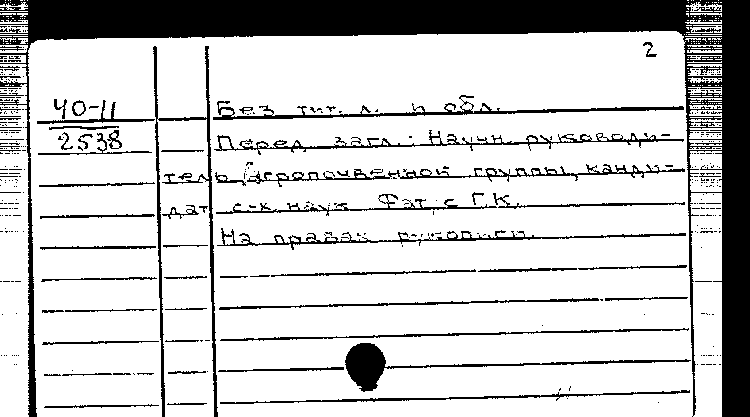 2
40-11
2538
Без тит. л. и обл.
Перед загл.: Научн. руководи-
тель агропочвенной группы, канди-
дат с-х. наук Г.К.
На правах рукописи.